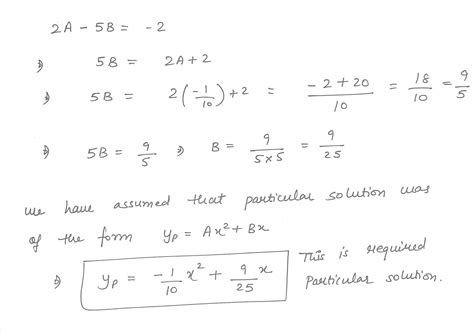 2A - 5B = -2
⇒ 5B = 2A + 2
⇒ 5B = 2(-1/10) + 2 = (-2 + 20)/10 = 18/10 = 9/5
⇒ 5B = 9/5 ⇒ B = 9/(5×5) = 9/25
we have assumed that particular solution was
of the form yp = Ax² + Bx
⇒ yp = -1/10 x² + 9/25 x This is required
Particular solution.